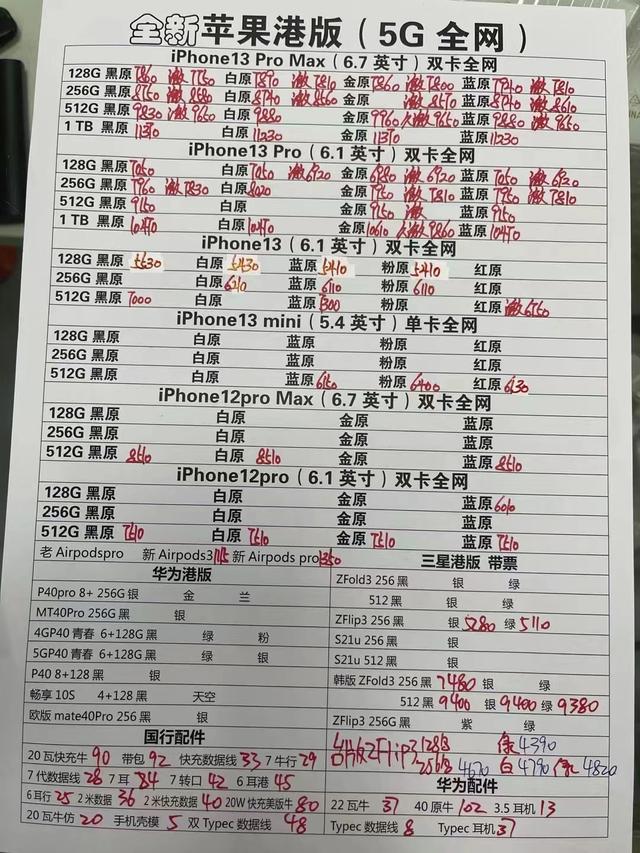 全新苹果港版（5G 全网）
iPhone13 Pro Max（6.7 英寸）双卡全网
128G 黑原 7860 激 7750 白原 7890 激 7810 金原 7860 激 7800 蓝原 7940 激 7810
256G 黑原 8750 激 8580 白原 8740 激 8560 金原 激 8570 蓝原 8740 激 8610
512G 黑原 9830 激 9650 白原 9880 金原 9960 激 9650 蓝原 9880 激 9650
1 TB 黑原 11370 白原 11230 金原 11370 蓝原 11230
iPhone13 Pro（6.1 英寸）双卡全网
128G 黑原 7050 白原 7050 激 6920 金原 6980 激 6920 蓝原 7050 激 6920
256G 黑原 7960 激 7830 白原 8020 金原 7950 激 7810 蓝原 7950 激 7810
512G 黑原 9150 白原 金原 9150 激 蓝原 9150
1 TB 黑原 10470 白原 10470 金原 10610 激 9860 蓝原 10470
iPhone13（6.1 英寸）双卡全网
128G 黑原 5530 白原 5430 蓝原 5410 粉原 5410 红原
256G 黑原 白原 6210 蓝原 6110 粉原 6110 红原
512G 黑原 7000 白原 蓝原 粉原 红原 激 6750
iPhone13 mini（5.4 英寸）单卡全网
128G 黑原 白原 蓝原 粉原 红原
256G 黑原 白原 蓝原 粉原 红原
512G 黑原 白原 蓝原 6150 粉原 6400 红原 6130
iPhone12pro Max（6.7 英寸）双卡全网
128G 黑原 白原 金原 蓝原
256G 黑原 白原 金原 蓝原
512G 黑原 8510 白原 8510 金原 蓝原 8510
iPhone12pro（6.1 英寸）双卡全网
128G 黑原 白原 金原 蓝原 6010
256G 黑原 白原 金原 蓝原
512G 黑原 7510 白原 7510 金原 7510 蓝原 7510
老 Airpodspro 新 Airpods3 1115 新 Airpods pro 1350
华为港版
P40pro 8+ 256G 银 金 兰
MT40Pro 256G 黑 银
4GP40 青春 6+128G 黑 绿 粉
5GP40 青春 6+128G 黑 绿 银
P40 8+128 黑 银
畅享 10S 4+128 黑 天空
欧版 mate40Pro 256 黑 银
国行配件
20 瓦快充牛 90 带包 92 快充数据线 33 7 牛行 29
7 代数据线 28 7 耳 84 7 转口 42 6 耳港 45
6 耳行 25 2 米数据 36 2 米快充数据 40 20W 快充美版牛 80
20 瓦牛仿 20 手机壳模 5 双 Typec 数据线 48
三星港版 带票
ZFold3 256 黑 银 绿
512 黑 银 绿
ZFlip3 256 黑 银 5280 绿 5110
S21u 256 黑 银
S21u 512 黑 银
韩版 ZFold3 256 黑 7480 银 绿
512 黑 9400 银 9400 绿 9380
ZFlip3 256G 黑 紫 绿
台版ZFlip3 128B 绿 4390
256B 4670 白 4790 绿 4820
华为配件
22 瓦牛 37 40 原牛 102 3.5 耳机 13
Typec 数据线 8 Typec 耳机 37